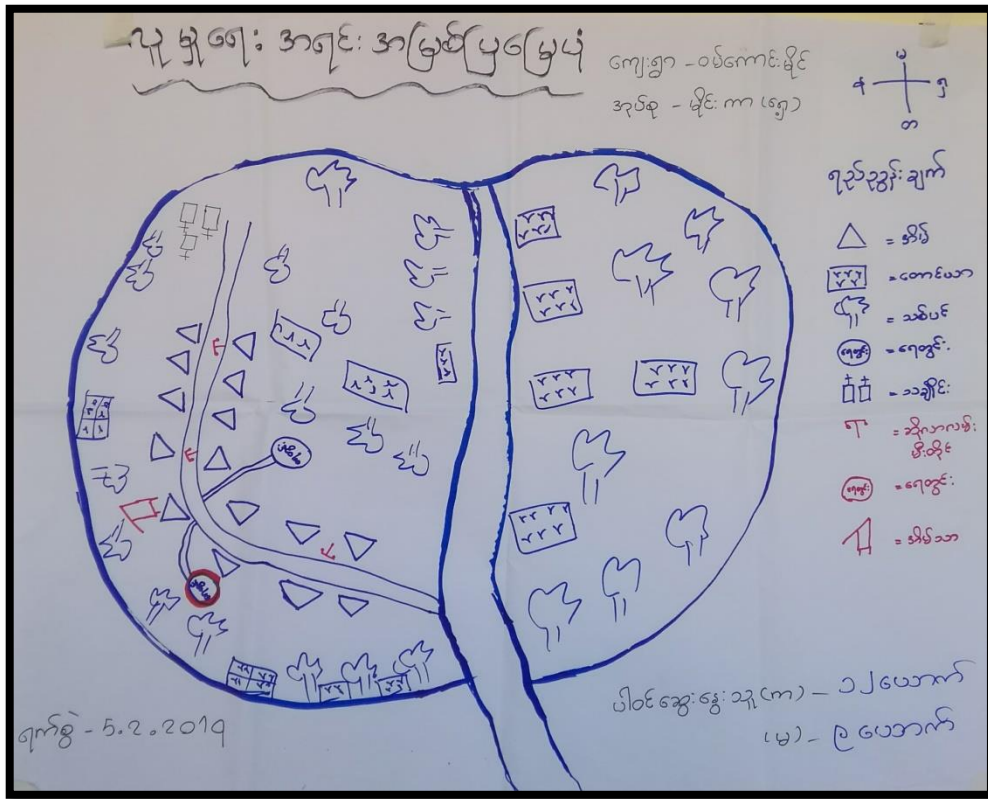 လူမှုရေး အရင်းအမြစ်ပြမြေပုံ
ကျေးရွာ - ဝမ်ကောင်းမိုင်
အုပ်စု - မိုင်းကာ (ရှေ့)
မ
န
ရှ
တ
ရည်ညွှန်းချက်
= အိမ်
= တောင်ယာ
= သစ်ပင်
ရေတွင်း = ရေတွင်း
= သချိုင်း
= ဆိုလာလမ်း
မီးတိုင်
ရေတွင်း = ရေတွင်း
= အိမ်သာ
ရေတွင်း
ရေတွင်း
ပါဝင်ဆွေးနွေးသူ (ကာ) - ၁၂ယောက်
(မ) - ၉ယောက်
ရက်စွဲ - 5.2.2019